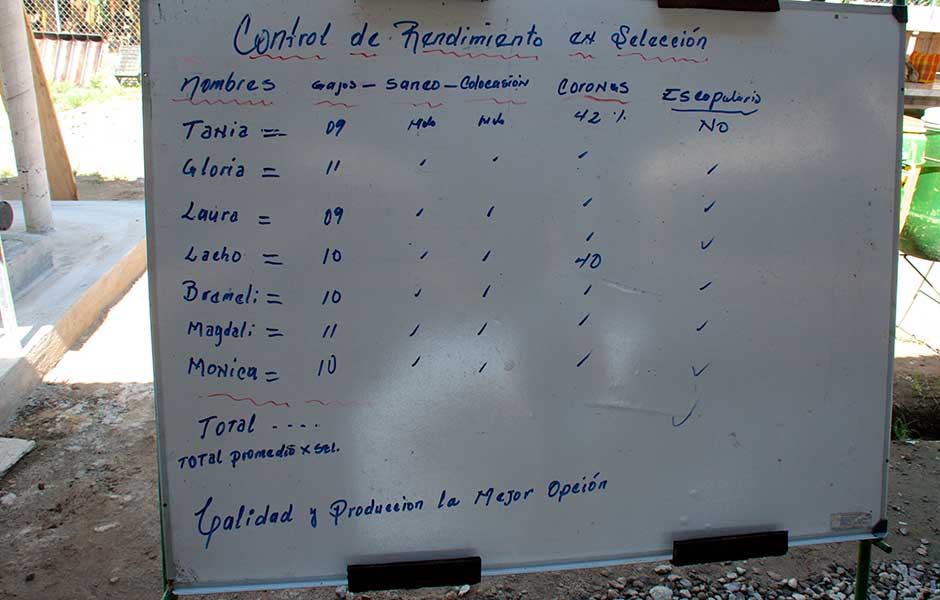 Control de Rendimiento en Selección
Nombres Gajos - Saneo - Colocasión Coronas Escapulario
Tania = 09 42 % No
Gloria = 11
Laura = 09
Lacho = 10 40
Brameli = 10
Magdali = 11
Monica = 10
Total ----
Total promedio x sel.
Calidad y Produccion la Mejor Opción